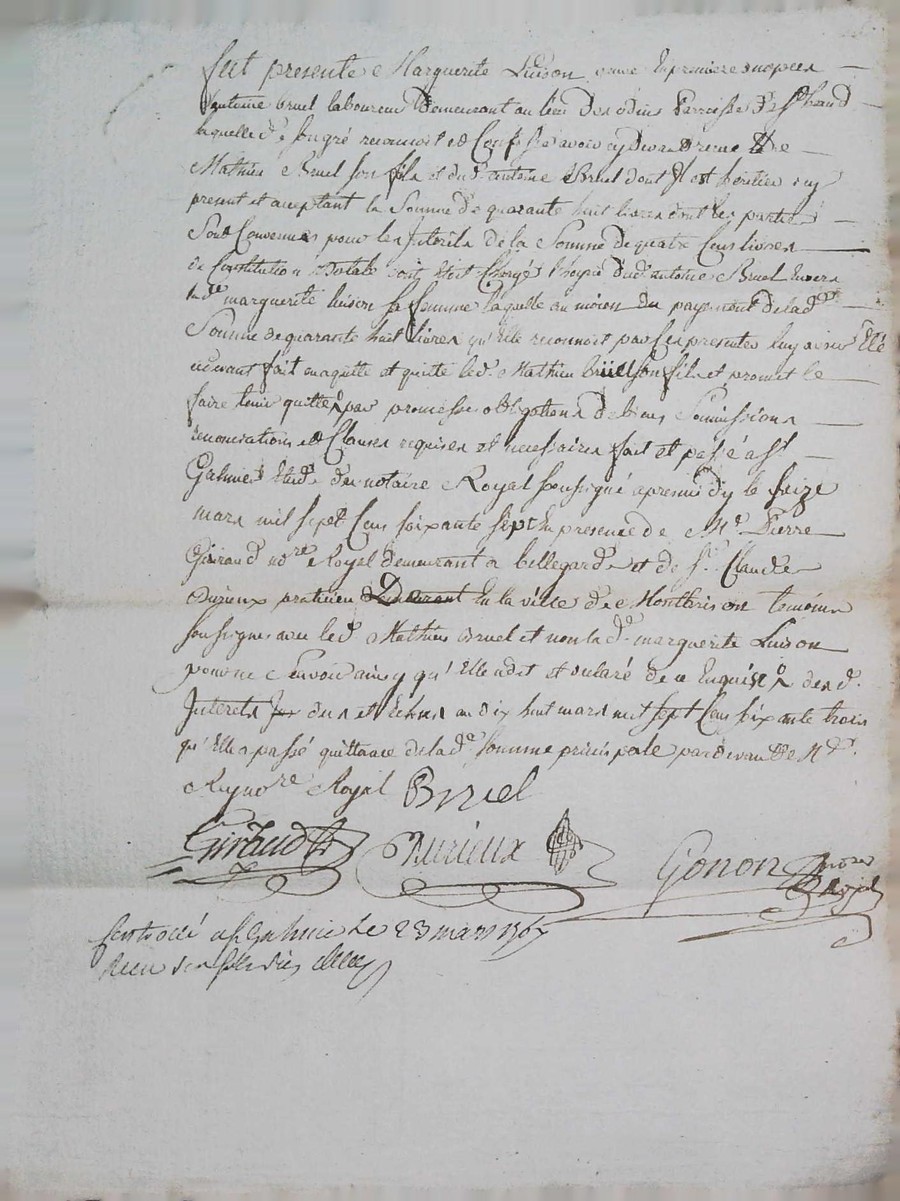 fut presente Marguerite Luison veuve En premieres nopces
d'antoine bruel laboureur Demeurant au lieu Des odins Parroisse De
laquelle de son gré reconnoit et Confesse avoir cy devant receu de
Mathieu Bruel son fils et du d. antoine Bruel dont Il est heritier icy
present et aceptant la Somme De quarante huit livres dont les parties
Sont Convenues pour les Interets De la Somme De quatre Cens livres
de Constitution Dotale dont Etoit Chargé l'hoirie dud antoine Bruel Envers
lad.e marguerite luison sa femme laquelle au moien du payement de lad.e
Somme de quarante huit livres qu'Elle reconnoit par Ces presentes luy avoir Eté
cy devant fait en aquitte et quitte led. Mathieu brüel son fils et promet le
faire tenir quitte par promesses obligations De biens Soumissions
renonciations et Clauses requises et necessaires fait et passé a St
Galmier Etude du notaire Royal soussigné apres midy le seize
mars mil sept Cens soixante sept En presence de Me. Pierre
Giraud nore. Royal demeurant a bellegarde et de Sr. Claude
Durieux praticien Demeurant En la ville de Montbrison temoins
soussignés avec led. Mathieu Bruel et non lad.e marguerite Luison
pour ne sçavoir ainsy qu'Elle a dit et declaré de ce Enquise des d.
Interets dus et Echus au dix huit mars mil sept Cens soixante trois
qu'Elle a passé quittance de lad.e somme principale par devant Me
Rey nore Royal Bruel
Giraud Durieux Gonon nore Royal
Controllé a St Galmier Le 23 mars 1767
Receu